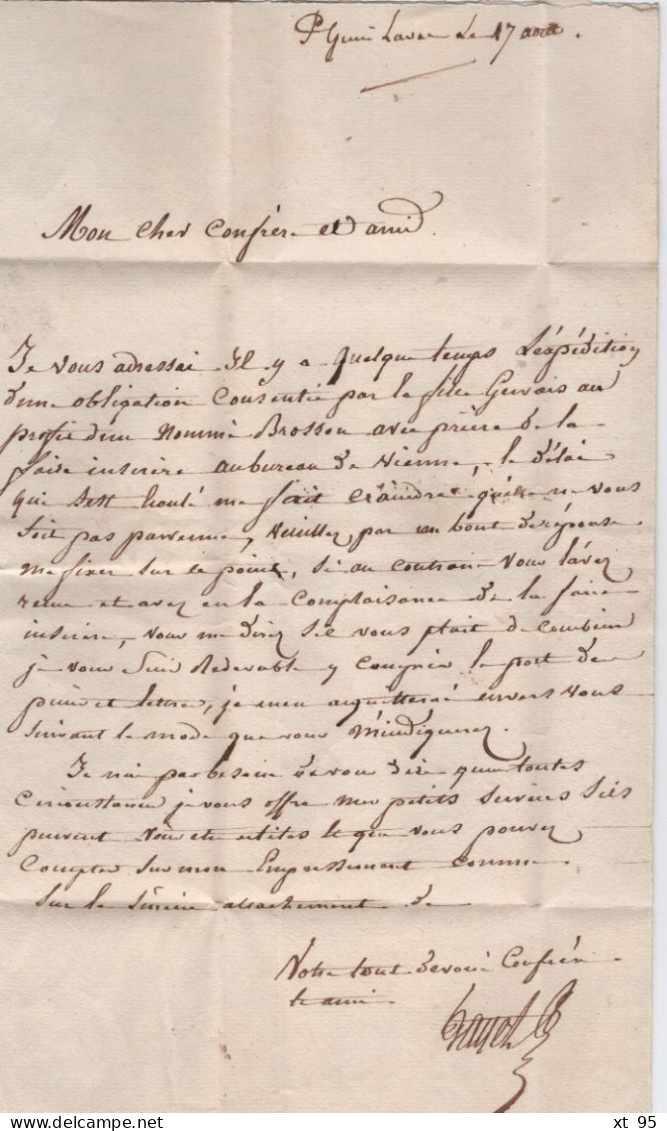 Le 17 aout.
Mon cher confrere et ami
Je vous adressai Il y a quelque temps L'expédition
d'une obligation Consentie par la fille Gervais au
profit d'un nommé Brosson avec prière de la
faire inscrire au bureau de Vienne, le délai
qui s'est Ecoulé me fait craindre qu'elle ne vous
soit pas parvenue, Veuillez par un bout de réponse
me fixer sur le point, si au contraire vous l'avez
recue et avez eu la Complaisance de la faire
inscrire, vous me direz s'il vous plait de combien
je vous suis Redevable y compris le port de
piece et lettre, je m'en acquitterai envers vous
suivant le mode que vous m'indiquerez.
Je n'ai pas besoin de vous dire qu'en toutes
circonstances je vous offre mes petits services s'ils
peuvent vous etre utiles et que vous pouvez
Compter sur mon Empressement comme
sur le sincère attachement de
Votre tout devoué Confrère
et ami